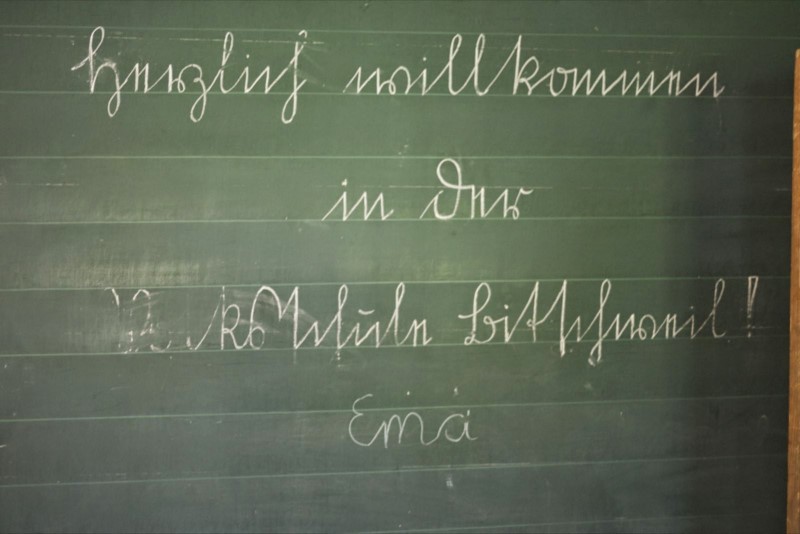 Herzlich willkommen
in der
Volksschule Bütschwil!
Ema